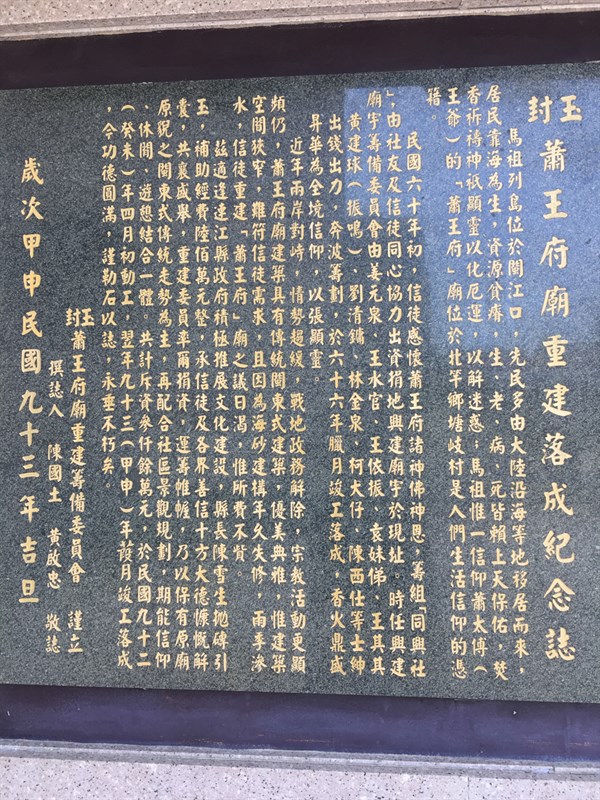 玉封蕭王府廟重建落成紀念誌
馬祖列島位於閩江口，先民多由大陸沿海等地移居而來，
居民靠海為生，資源貧瘠，生、老、病、死皆賴上天保佑，焚
香祈禱神祇顯靈以化厄運，以解迷惑；馬祖惟一信仰蕭太傅（
王爺）的「蕭王府」廟位於北竿鄉塘岐村是人們生活信仰的憑
籍。
民國六十年初，信徒感懷蕭王府諸神佛神恩，籌組「同興社
」，由社友及信徒同心協力出資捐地興建廟宇於現址。時任興建
廟宇籌備委員會由姜元泉、王水官、王依振、袁妹俤、王其其
黃建球（振鳴）、劉清鏞、林金泉、柯犬仔、陳西仕等士紳
出錢出力，奔波籌劃，於六十六年臘月竣工落成，香火鼎盛
昇華為全境信仰，以張顯靈。
近年兩岸對峙，情勢趨緩，戰地政務解除，宗教活動更顯
頻仍，蕭王府廟建築具有傳統閩東式建築，優美典雅，惟建築
空間狹窄，難符信徒需求，且因為海砂建構年久失修，雨季滲
水，信徒重建「蕭王府」廟之議日濃，惟所費不貲。
茲適逢連江縣政府積極推展文化建設，縣長陳雪生拋磚引
玉，補助經費陸佰萬元整，承信徒及各界善信十方大德慷慨解
囊，共襄盛舉，重建委員率爾捐資，運籌帷幄，乃以保有原廟
原貌之閩東式傳統走勢為主，再配合社區景觀規劃，期能信仰
、休閒、遊憩結合一體。共計斥資參仟餘萬元，於民國九十二
（癸未）年四月初動工，翌年九十三（甲申）年葭月竣工落成
，今功德圓滿，謹勒石以誌，永垂不朽矣。
玉封蕭王府廟重建籌備委員會 謹立
撰誌人 陳國土 黃啟忠 敬誌
歲次甲申民國九十三年吉旦